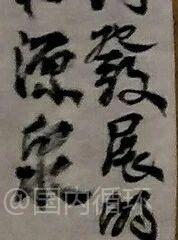 發展的
源泉
@国内循环